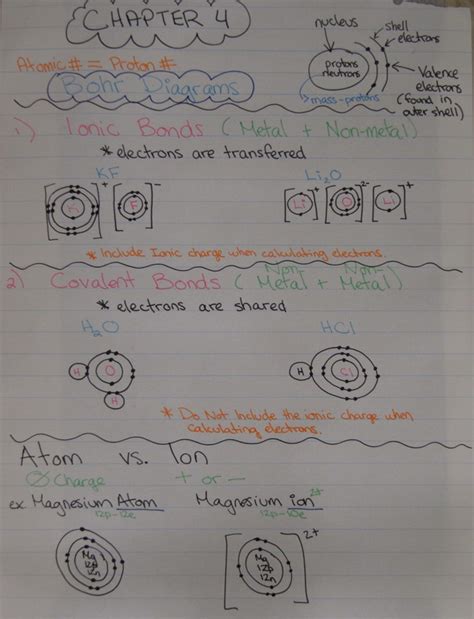 CHAPTER 4
Atomic # = Proton #
Bohr Diagrams
nucleus
shell
electrons
protons
neutrons
mass-protons
Valence
electrons
(found in
outer shell)
1) Ionic Bonds (Metal + Non-metal)
* electrons are transferred
KF
Li2O
[K]+ [F]-
[Li]+ [O]2- [Li]+
* Include Ionic charge when calculating electrons.
2) Covalent Bonds (Non-Metal + Non-Metal)
* electrons are shared
H2O
HCl
H O
H
H Cl
* Do Not Include the ionic charge when
calculating electrons.
Atom vs. Ion
∅ Charge + or -
ex. Magnesium Atom Magnesium ion 2+
12p-12e 12p-10e
Mg
12p
12n
Mg
12p
12n
2+